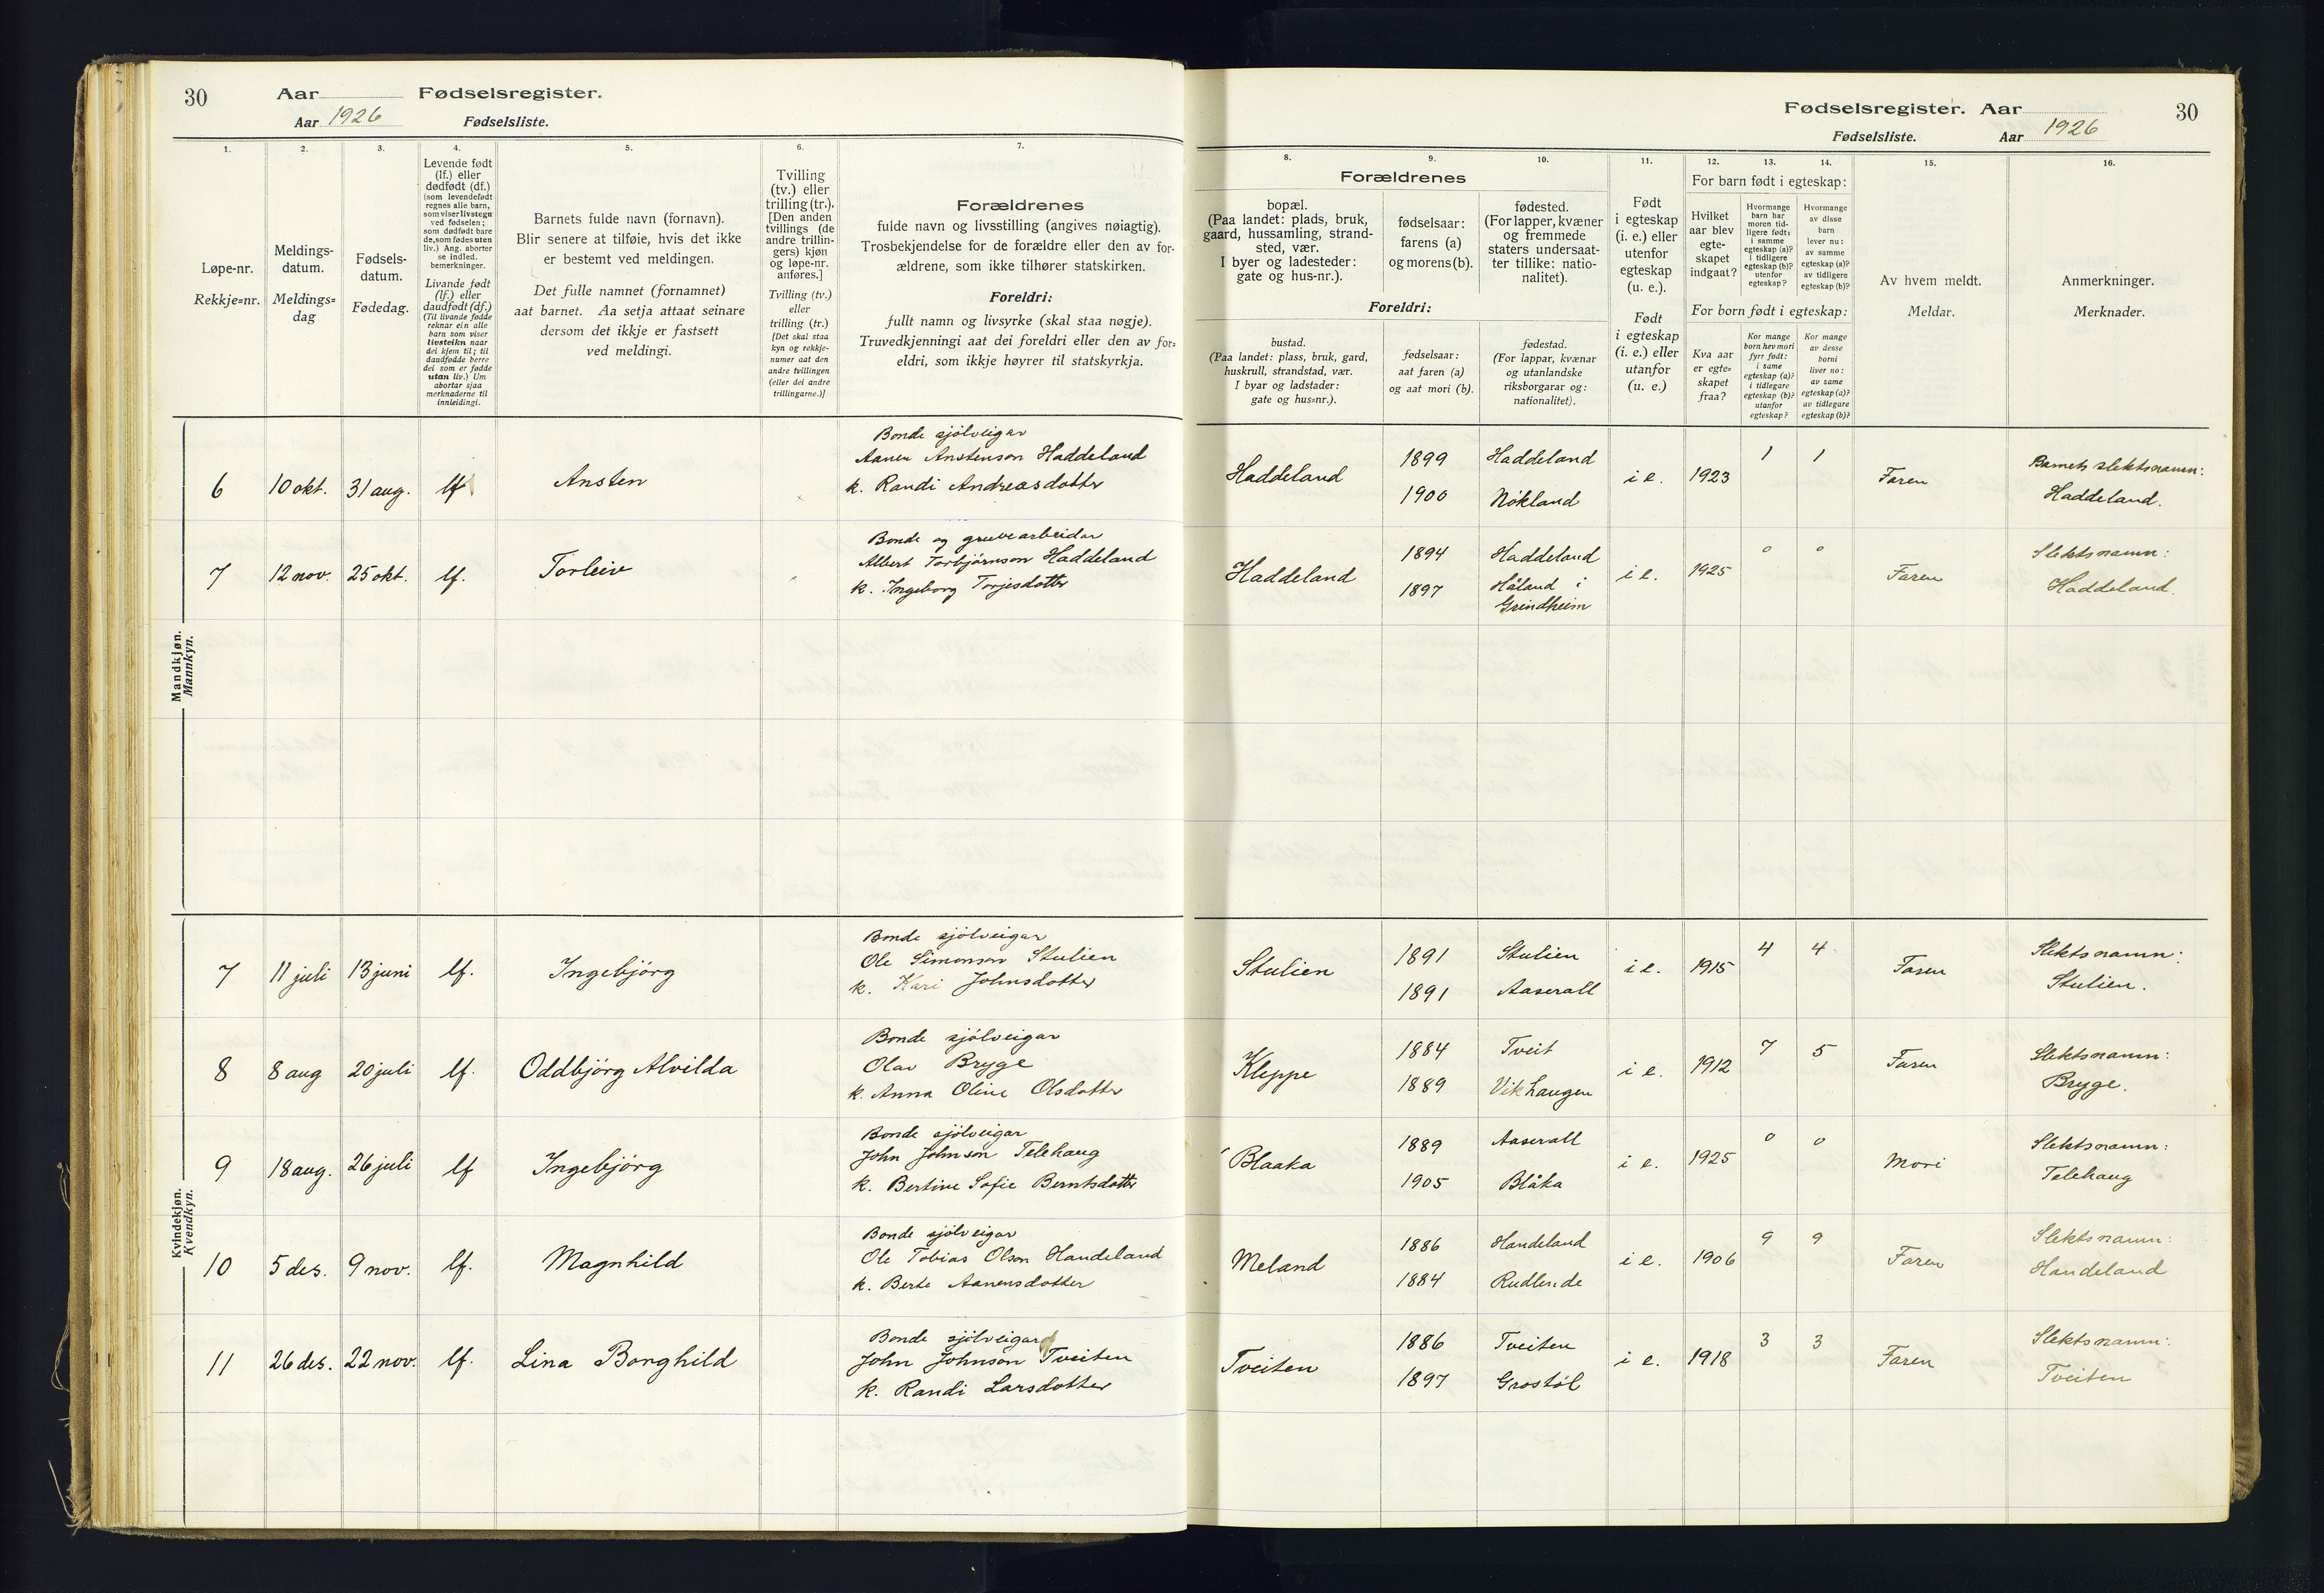 30
Aar Fødselsregister.
Aar 1926 Fødselsliste.
1.
2.
3.
4.
5.
6.
7.
Løpe-nr.
Rekkje=nr.
Meldings-
datum.
Meldings=
dag
Fødsels-
datum.
Fødedag.
Levende født
(lf.) eller
dødfødt (df.)
(som levendefødt
regnes alle barn,
som viser livstegn
ved fødselen;
som dødfødt bare
de, som fødes uten
liv.) Ang. aborter
se indled.
bemerkninger.
Livande født
(lf.) eller
daudfødt (df.)
(Til livande fødde
reknar ein alle
barn som viser
livsteikn naar
dei kjem til; til
daudfødde berre
dei som er fødde
utan liv.) Um
abortar sjaa
merknaderne til
innleidingi.
Barnets fulde navn (fornavn).
Blir senere at tilføie, hvis det ikke
er bestemt ved meldingen.
Det fulle namnet (fornamnet)
aat barnet. Aa setja attaat seinare
dersom det ikkje er fastsett
ved meldingi.
Tvilling
(tv.) eller
trilling (tr.).
[Den anden
tvillings (de
andre trillin-
gers) kjøn
og løpe-nr.
anføres.]
Tvilling (tv.)
eller
trilling (tr.)
[Det skal staa
kyn og rekkje-
numer aat den
andre tvillingen
(eller dei andre
trillingarne.)]
Forældrenes
fulde navn og livsstilling (angives nøiagtig).
Trosbekjendelse for de forældre eller den av for-
ældrene, som ikke tilhører statskirken.
Foreldri:
fullt namn og livsyrke (skal staa nøgje).
Truvedkjenningi aat dei foreldri eller den av for=
eldri, som ikkje høyrer til statskyrkja.
Mandkjøn.
Mannkyn.
6 10 okt. 31 aug. lf Ansten
Bonde sjölveigar
Aanen Anstenson Haddeland
k. Randi Andreasdotter
7 12 nov. 25 okt. lf. Torleiv
Bonde og gruvearbeidar
Albert Torbjörnson Haddeland
k. Ingeborg Torjesdotter
Kvindekjøn.
Kvendkyn.
7 11 juli 13 juni lf. Ingebjörg
Bonde sjölveigar
Ole Simonson Stulien
k. Kari Johnsdotter
8 8 aug 20 juli lf. Oddbjörg Alvilda
Bonde sjölveigar
Olav Bryge
k. Anna Oline Olsdotter
9 18 aug. 26 juli lf Ingebjörg
Bonde sjölveigar
John Johnson Telehaug
k. Bertine Sofie Berntsdotter
10 5 des. 9 nov. lf. Magnhild
Bonde sjölveigar
Ole Tobias Olson Handeland
k. Berte Aanensdotter
11 26 des. 22 nov. lf. Lina Borghild
Bonde sjölveigar
John Johnson Tveiten
k. Randi Larsdotter
Fødselsregister. Aar
30
Fødselsliste. Aar 1926
8.
9.
10.
11.
12.
13.
14.
15.
16.
Forældrenes
bopæl.
(Paa landet: plads, bruk,
gaard, hussamling, strand-
sted, vær.
I byer og ladesteder:
gate og hus-nr.).
fødselsaar:
farens (a)
og morens (b).
fødested.
(For lapper, kvæner
og fremmede
staters undersaat-
ter tillike: natio-
nalitet).
Foreldri:
bustad.
(Paa landet: plass, bruk, gard,
huskrull, strandstad, vær.
I byar og ladstader:
gate og hus=nr.).
fødselsaar:
aat faren (a)
og aat mori (b).
fødestad.
(For lappar, kvænar
og utanlandske
riksborgarar og:
nationalitet).
Født
i egteskap
(i. e.) eller
utenfor
egteskap
(u. e.).
Født
i egteskap
(i. e.) eller
utanfor
(u. e.)
For barn født i egteskap:
Hvilket
aar blev
egte-
skapet
indgaat?
Hvormange
barn har
moren tid-
ligere født:
i samme
egteskap (a)?
i tidligere
egteskap (b)?
utenfor
egteskap?
Hvormange
av disse
barn
lever nu:
av samme
egteskap (a)?
av tidligere
egteskap (b)?
For born født i egteskap:
Kva aar
er egte=
skapet
fraa?
Kor mange
born hev mori
fyrr født:
i same
egteskap (a)?
i tidlegare
egteskap (b)?
utanfor
egteskap?
Kor mange
av desse
borni
liver no:
av same
egteskap (a)?
av tidlegare
egteskap (b)?
Av hvem meldt.
Meldar.
Anmerkninger.
Merknader.
Haddeland
1899 Haddeland
1900 Nökland
i e. 1923 1 1 Faren
Barnets slektsnamn:
Haddeland.
Haddeland
1894 Haddeland
1897 Håland i
Grindheim
i e. 1925 0 0 Faren
Slektsnamn:
Haddeland.
Stulien
1891 Stulien
1891 Aaserall
i e. 1915 4 4 Faren
Slektsnamn:
Stulien.
Kleppe
1884 Tveit
1889 Vikhaugen
i e. 1912 7 5 Faren
Slektsnamn:
Bryge.
Blaaka
1889 Aaserall
1905 Blåka
i e. 1925 0 0 Mori
Slektsnamn:
Telehaug
Meland
1886 Handeland
1884 Rudlende
i e. 1906 9 9 Faren
Slektsnamn:
Handeland
Tveiten
1886 Tveiten
1897 Grostöl
i e. 1918 3 3 Faren
Slektsnamn:
Tveiten